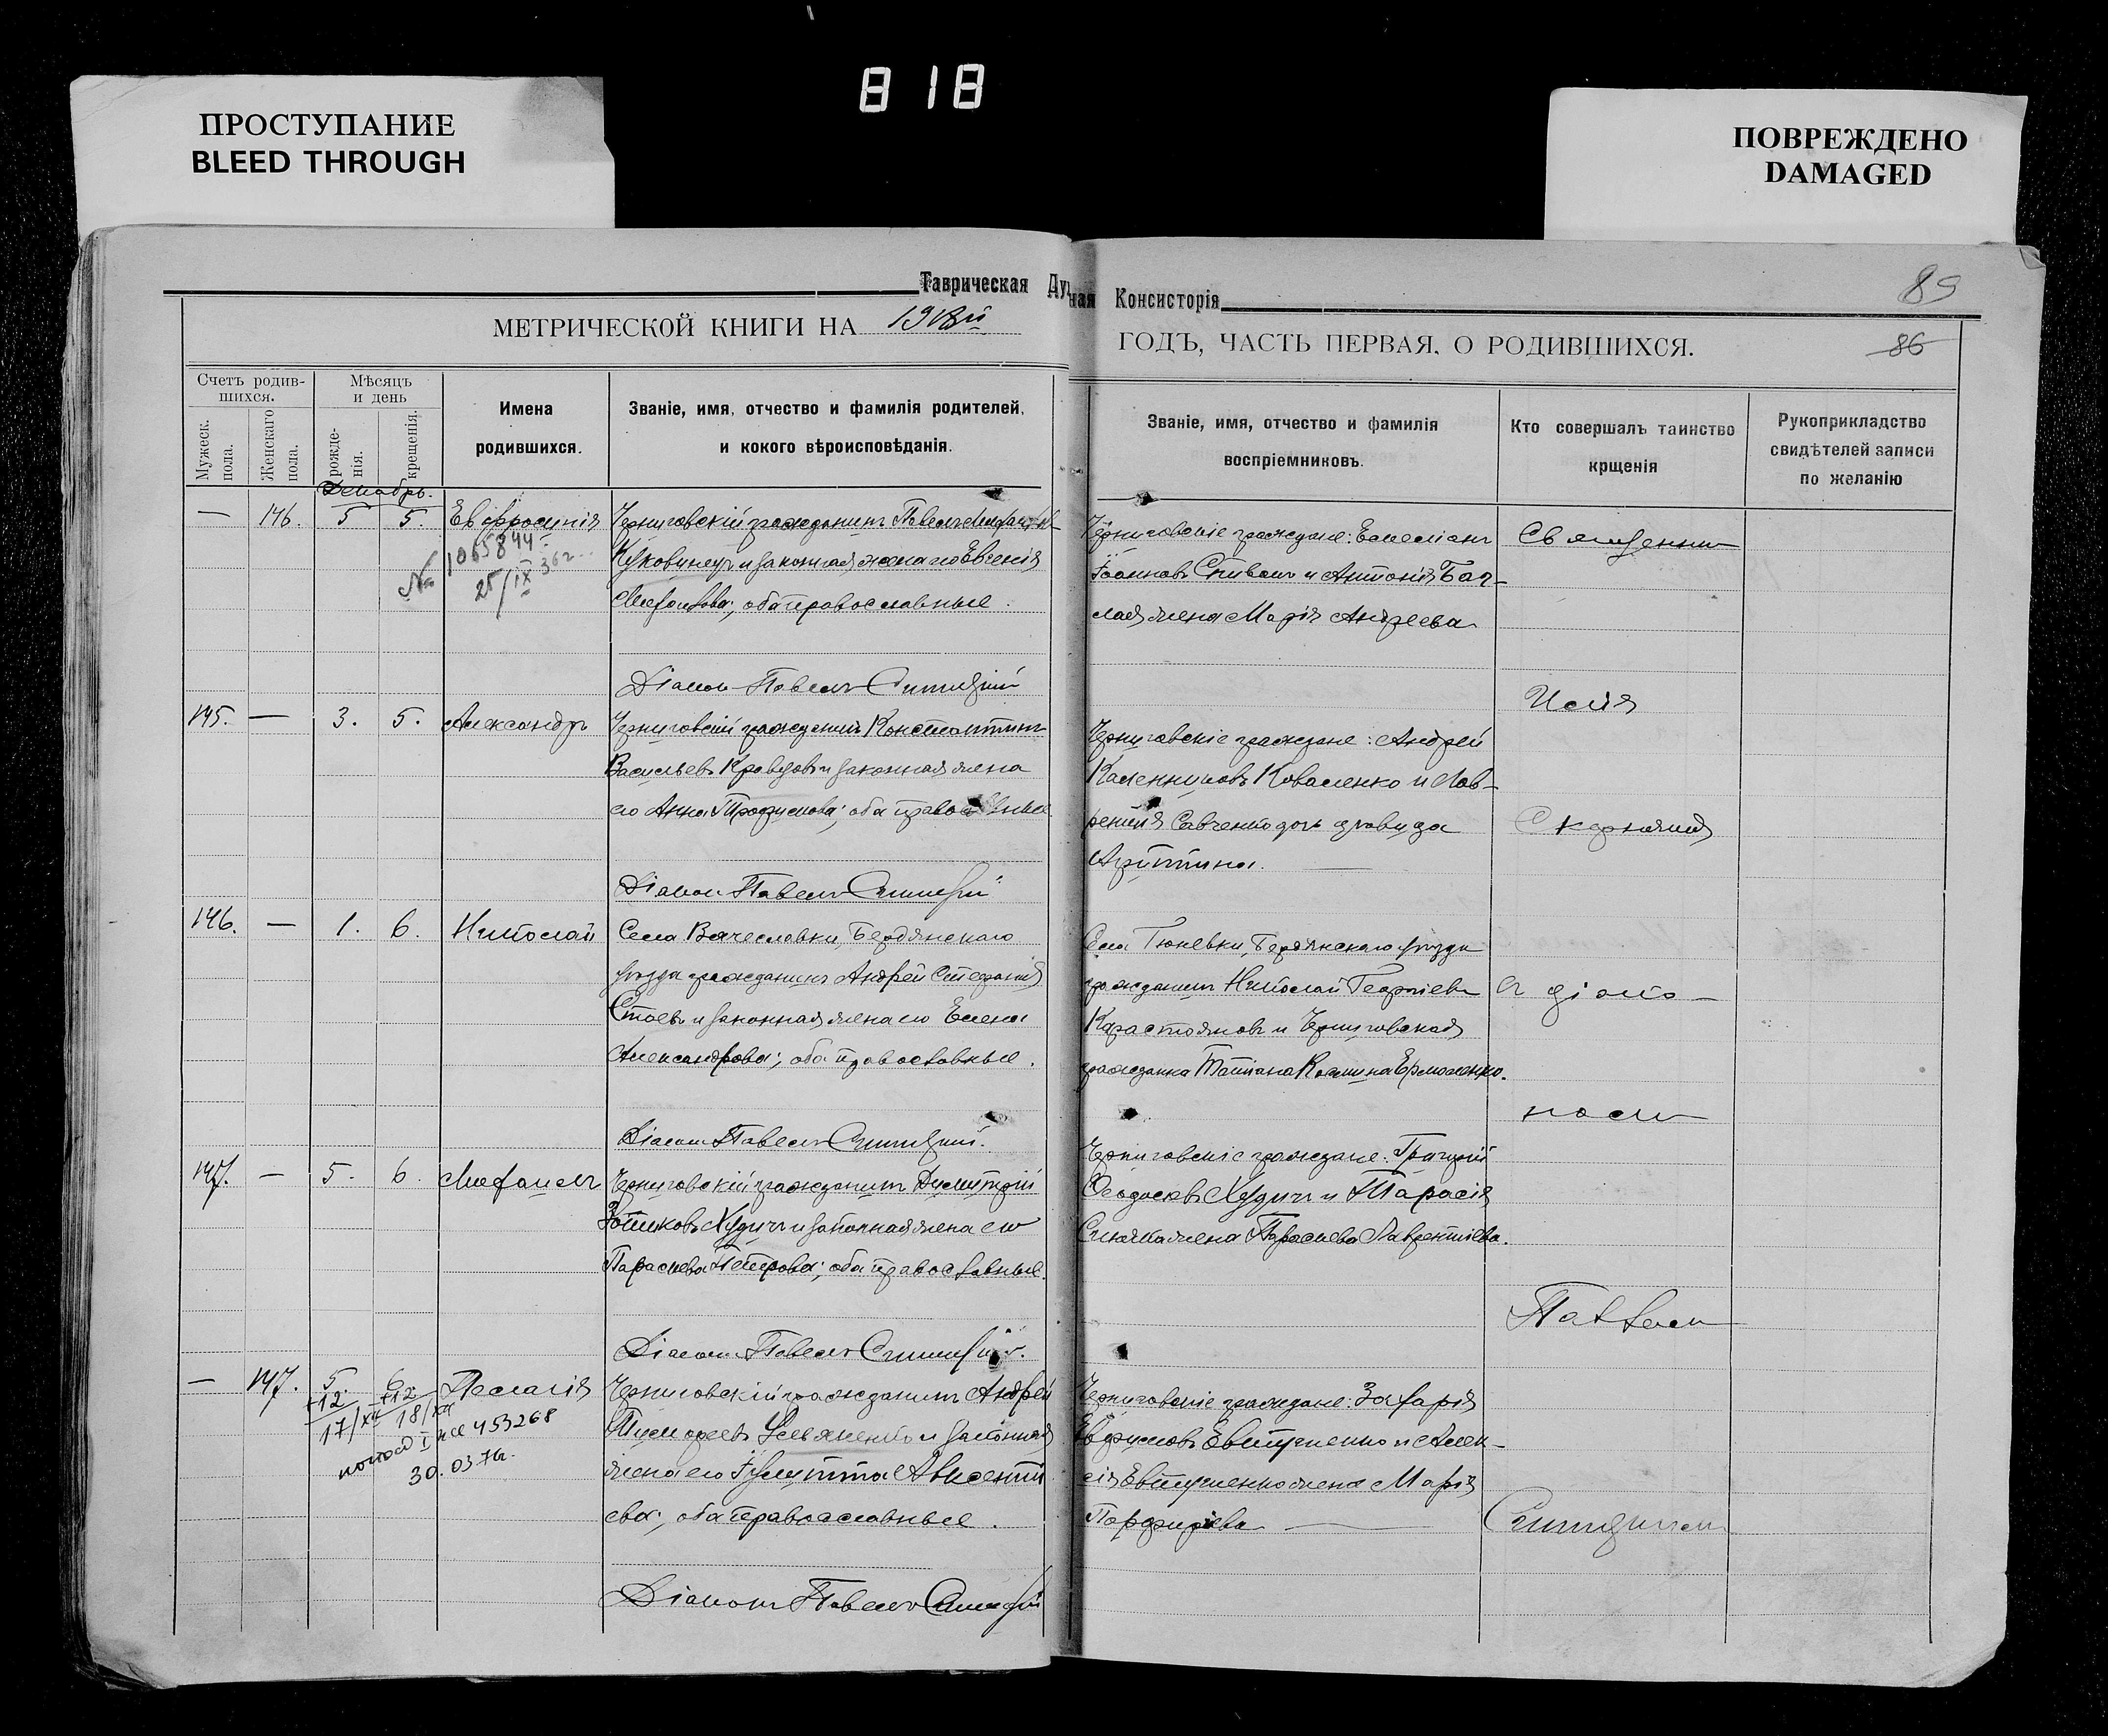 818
ПРОСТУПАНИЕ
BLEED THROUGH
ПОВРЕЖДЕНО
DAMAGED
Таврическая Ду
ная Консисторія
89
МЕТРИЧЕСКОЙ КНИГИ НА
ГОДЪ, ЧАСТЬ ПЕРВАЯ, О РОДИВШИХСЯ.
86
Счетъ родив-
шихся.
Мужеск. пола.
Женскаго пола.
Мѣсяцъ
и день
рожде-
нія.
крещенія.
Имена
родившихся.
Званіе, имя, отчество и фамилія родителей,
и кокого вѣроисповѣданія.
Званіе, имя, отчество и фамилія
воспріемниковъ.
Кто совершалъ таинство
крщенія
Рукоприкладство
свидѣтелей записи
по желанію
Декабрь.
— 146. 5 5. Евфросинія
№ 1065844
25/IX 36г.
Черниговскій гражданинъ Павелъ
и законная жена его Евгенія
оба православные.
Діаконъ Павелъ Синицкій
Черниговскіе граждане: Емеліанъ
Іоанновъ Спивакъ и Антонія
жена Марія Андреева
145. — 3. 5. Александръ
Черниговскій гражданинъ Константинъ
Васильевъ Кравцовъ и законная жена
его Анна Трофимова; оба православные
Діаконъ Павелъ Синицкій
Черниговскіе граждане: Андрей
Каленниковъ Коваленко и Лав-
рентія Савченко дочь дѣвица
146. — 1. 6. Николай
Села Вячеславки, Бердянскаго
уѣзда гражданинъ Андрей Стефановъ
Стоевъ и законная жена его Елена
Александрова; оба православные.
Діаконъ Павелъ Синицкій.
Села Гюневки, Бердянскаго уѣзда
гражданинъ Николай Георгіевъ
Карастояновъ и Черниговская
гражданка Татіана Космина Ермоленко.
147. — 5. 6. Михаилъ
Черниговскій гражданинъ Димитрій
Худичъ и законная жена его
Параскева Петрова; оба православные.
Діаконъ Павелъ Синицкій.
Черниговскіе граждане: Григорій
Худичъ и Тарасія
жена Параскева Лаврентіева.
— 147. 5. 6 Пелагія
+12 +12
17/XII 18/XII
453268
30.03.76г.
Черниговскій гражданинъ Андрей
Тимофеевъ и законная
жена его Іулитта Авксентіі
ева; оба православные.
Діаконъ Павелъ Синицкій
Черниговскіе граждане: Захарія
Евфимовъ Евтушенко и Алек-
сія Евтушенко жена Марія
Порфиріева —
Священни
Илія
съ діако-
номъ
Павлом
Синицкимъ